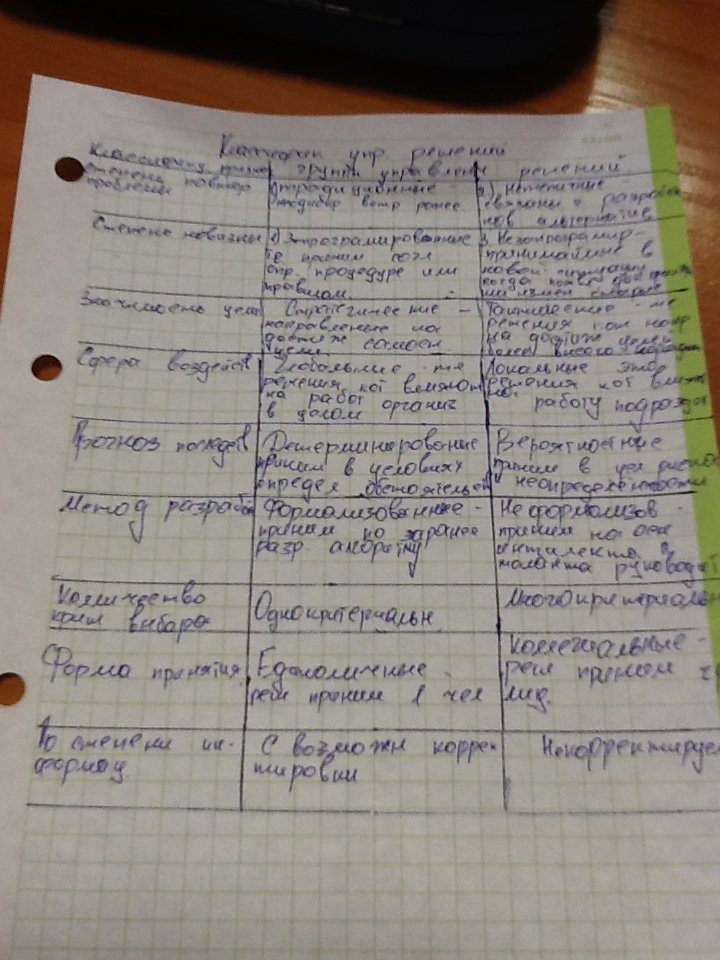 упр решений
группы управлен решений
степень повтор
проблемы
традиционные -
ранее.
2) Нетипичные
связаны с разработ
нов альтернатив
Степень новизны
1) Запрограмированные
приним согл
опр. процедуре или
правилом.
принимаемые в
новой ситуации
Значимость цели
Стратегические -
направленые на
достиж самост.
цели
решения
на достиж целей
более
Сфера воздейств
Глобальные
решения кот влияют
на работ
в целом организ
Локальные это
решения кот
работу подразд
Прогноз последств
Детерминированые
приним в условиях
определ обстоятельств
Вероятностные
приним в усл риска
неопределенности
Метод разработ
Формализованные -
приним по заранее
разр. алгоритму
Не формализов -
приним на осн
интилекта и
таланта руководит
Колличество
крит выбора
Однокритериальн
Многокритериальн
Форма принятия
Едоноличные -
реш приним 1 чел
Коллегиальные -
реш приним
лиц.
По степени ин-
формац.
С возможн коррек
тировки
Некорректируем